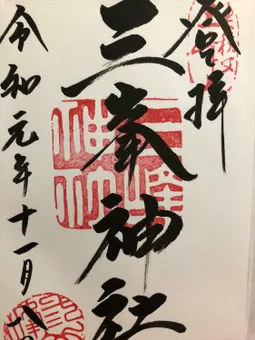 登拝
三峯神社
令和元年十一月八日